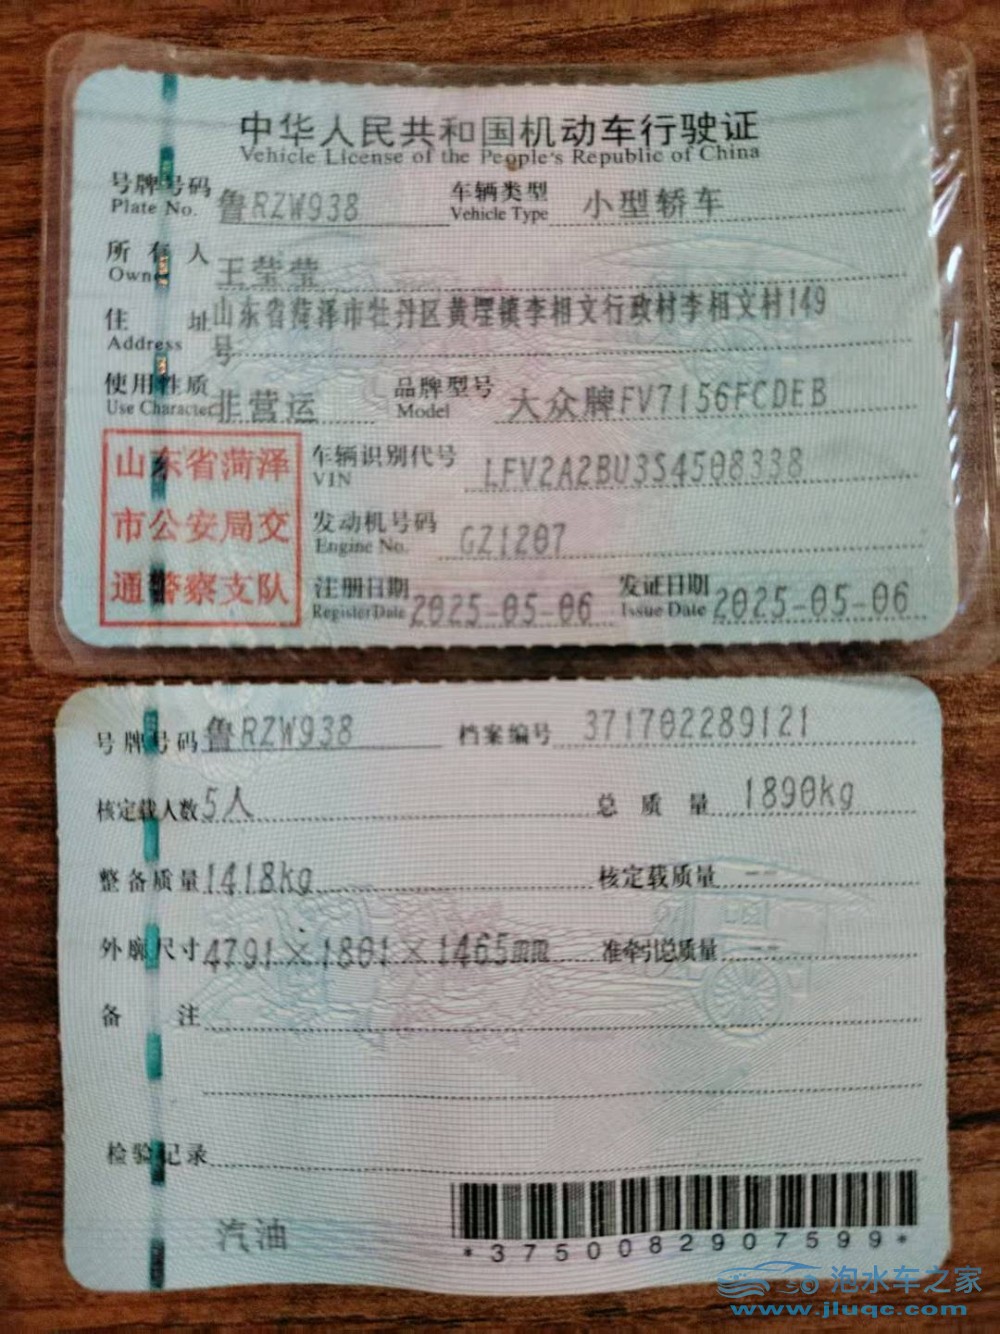 中华人民共和国机动车行驶证
Vehicle License of the People's Republic of China
号牌号码 Plate No. 鲁RZW938 车辆类型 Vehicle Type 小型轿车
所有人 Owner 王莹莹
住址 Address 山东省菏泽市牡丹区黄堽镇李相文行政村李相文村149
号
使用性质 Use Character 非营运 品牌型号 Model 大众牌FV7156FCDEB
山东省菏泽
市公安局交
通警察支队
车辆识别代号 VIN LFV2A2BU3S4508338
发动机号码 Engine No. GZ1207
注册日期 Register Date 2025-05-06 发证日期 Issue Date 2025-05-06
号牌号码 鲁RZW938 档案编号 371702289121
核定载人数 5人 总质量 1890kg
整备质量 1418kg 核定载质量 --
外廓尺寸 4791×1801×1465mm 准牵引总质量 --
备注
检验记录
汽油
*3750082907599*
泡水车之家
www.jluqc.com